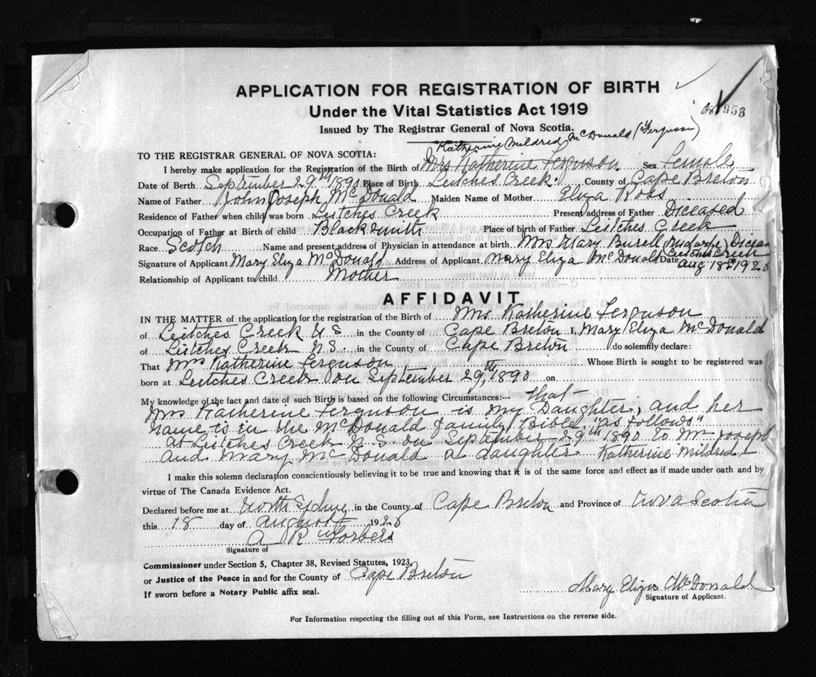 APPLICATION FOR REGISTRATION OF BIRTH
953
Under the Vital Statistics Act 1919
Issued by The Registrar General of Nova Scotia.
Katherine Mildred McDonald (Ferguson)
TO THE REGISTRAR GENERAL OF NOVA SCOTIA:
I hereby make application for the Registration of the Birth of Mrs Katherine Ferguson Sex Female
Date of Birth September 29th 1890 Place of Birth Leitches Creek County of Cape Breton
Name of Father John Joseph McDonald Maiden Name of Mother Eliza Ross
Residence of Father when child was born Leitches Creek Present address of Father Diceased
Occupation of Father at Birth of child Blacksmith Place of birth of Father Leitches Creek
Race Scotch Name and present address of Physician in attendance at birth Mrs Mary Burell (Midwife) Diceas
Leitches Creek
Signature of Applicant Mary Eliza McDonald Address of Applicant Mary Eliza McDonald Date Aug 18th 1928
Relationship of Applicant to child Mother
AFFIDAVIT
IN THE MATTER of the application for the registration of the Birth of Mrs Katherine Ferguson
of Leitches Creek N S in the County of Cape Breton I, Mary Eliza McDonald
of Leitches Creek N S. in the County of Cape Breton do solemnly declare:
That Mrs Katherine Ferguson Whose Birth is sought to be registered was
born at Leitches Creek on September 29th, 1890 on
My knowledge of the fact and date of such Birth is based on the following Circumstances:- that
Mrs Katherine Ferguson is my Daughter, and her
name is in the McDonald family Bible, "as follows"
at Leitches Creek N S on September 29th 1890 to Mr Joseph
and Mary McDonald a daughter Katherine Mildred
I make this solemn declaration conscientiously believing it to be true and knowing that it is of the same force and effect as if made under oath and by
virtue of The Canada Evidence Act.
Declared before me at North Sydney in the County of Cape Breton and Province of Nova Scotia
this 18 day of August 1928
A R Forbes
Signature of
Commissioner under Section 5, Chapter 38, Revised Statutes, 1923,
or Justice of the Peace in and for the County of Cape Breton
If sworn before a Notary Public affix seal.
Mary Eliza McDonald
Signature of Applicant.
For Information respecting the filling out of this Form, see Instructions on the reverse side.